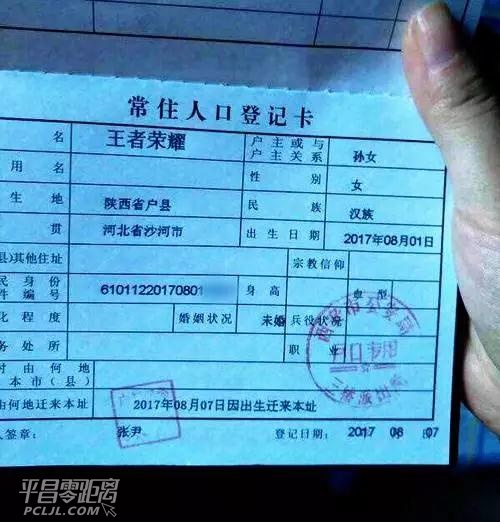 常住人口登记卡
名 王者荣耀 户主或与户主关系 孙女
用名 性别 女
生地 陕西省户县 民族 汉族
贯 河北省沙河市 出生日期 2017年08月01日
县)其他住址 宗教信仰
民身份件编号 61011220170801 身高 血型
化程度 婚姻状况 未婚 兵役状况
务处所 职业
时由何地本市(县)
由何地迁来本址 2017年08月07日因出生迁来本址
人签章: 张尹 登记日期: 2017 08 07
户口专用
平昌零距离
PCLJL.COM